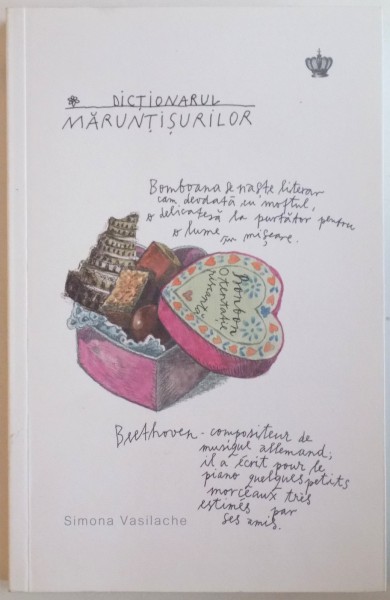 DICȚIONARUL
MĂRUNȚIȘURILOR
Bomboana se naște literar
cam deodată cu moftul,
o delicatesă la purtător pentru
o lume în mișcare.
Bonbon
O tentație
riscantă
Beethoven - compositeur de
musique allemand;
il a écrit pour le
piano quelques petits
morceaux très
estimés par
ses amis.
Simona Vasilache